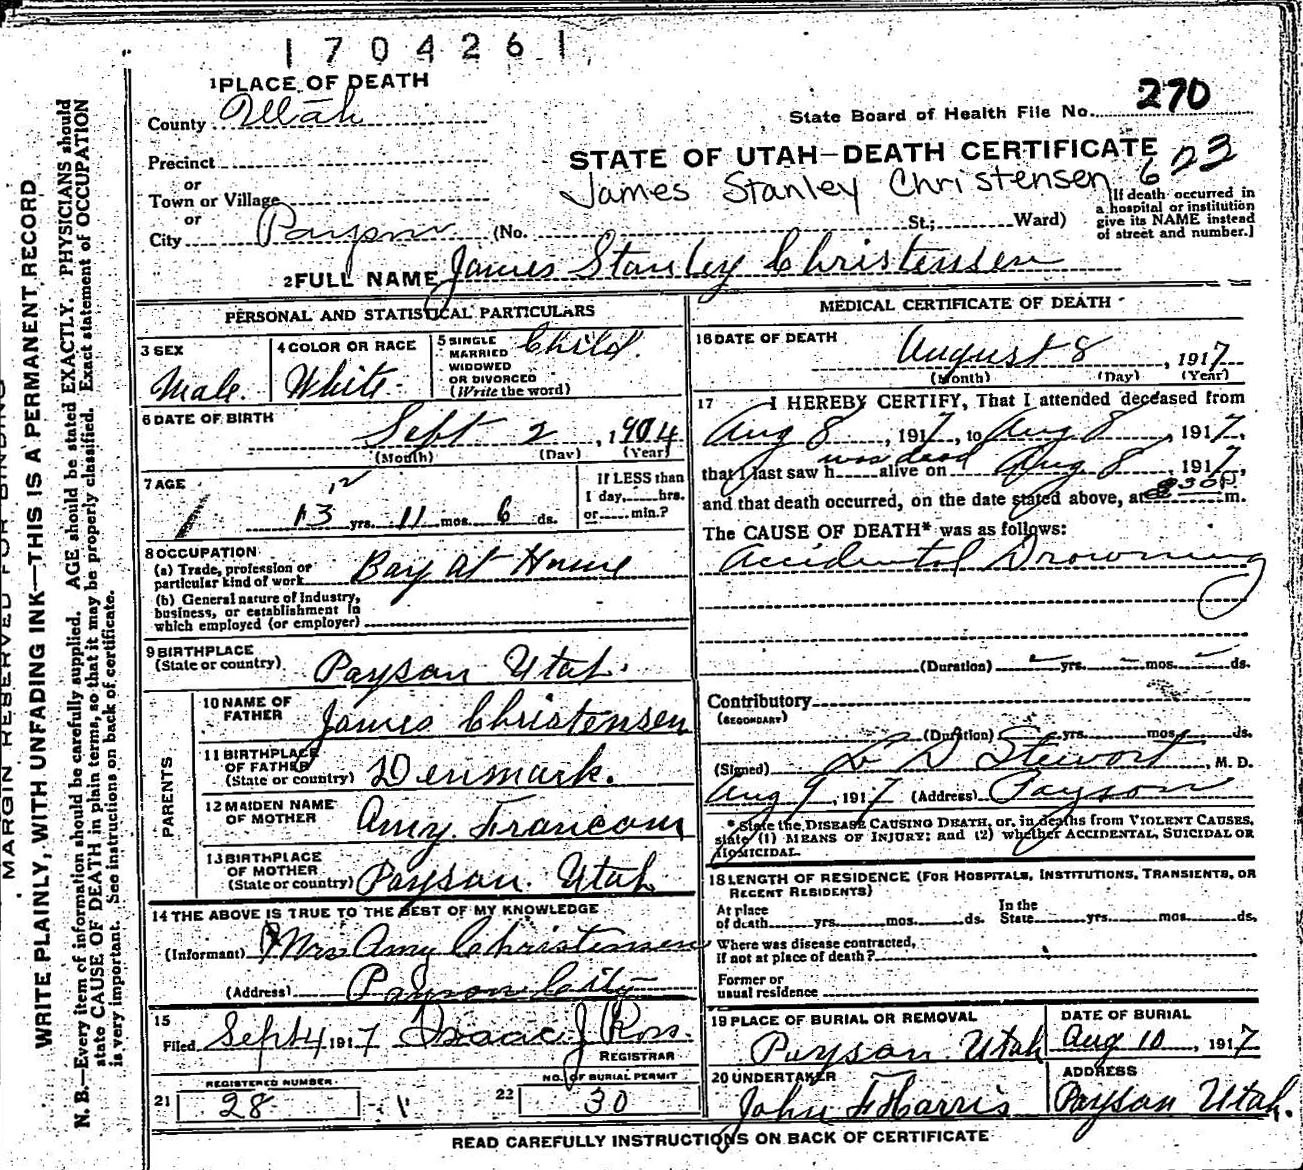 1704261
1 PLACE OF DEATH
County Utah
State Board of Health File No. 270
Precinct
STATE OF UTAH—DEATH CERTIFICATE 623
or
Town or Village
James Stanley Christensen
or
City Payson (No. St.; Ward)
[If death occurred in
a hospital or institution
give its NAME instead
of street and number.]
2 FULL NAME James Stanley Christensen
PERSONAL AND STATISTICAL PARTICULARS
3 SEX
Male.
4 COLOR OR RACE
White.
5 SINGLE
MARRIED
WIDOWED
OR DIVORCED
(Write the word)
Child.
6 DATE OF BIRTH
Sept 2, 1904
(Month) (Day) (Year)
7 AGE
12
13 yrs. 11 mos. 6 ds.
If LESS than
1 day, hrs.
or min.?
8 OCCUPATION
(a) Trade, profession or
particular kind of work Boy at Home
(b) General nature of industry,
business, or establishment in
which employed (or employer)
9 BIRTHPLACE
(State or country) Payson Utah.
PARENTS
10 NAME OF
FATHER James Christensen
11 BIRTHPLACE
OF FATHER
(State or country) Denmark.
12 MAIDEN NAME
OF MOTHER Amy Francom
13 BIRTHPLACE
OF MOTHER
(State or country) Payson. Utah
14 THE ABOVE IS TRUE TO THE BEST OF MY KNOWLEDGE
(Informant) Mrs Amy Christensen
(Address) Payson City
15
Filed Sept 4 1917 Isaac J Ross.
REGISTRAR
REGISTERED NUMBER.
21 28
NO. OF BURIAL PERMIT
22 30
MEDICAL CERTIFICATE OF DEATH
16 DATE OF DEATH
August 8, 1917
(Month) (Day) (Year)
17 I HEREBY CERTIFY, That I attended deceased from
Aug 8, 1917, to Aug 8, 1917,
was dead
that I last saw h alive on Aug 8, 1917,
and that death occurred, on the date stated above, at 830 P m.
The CAUSE OF DEATH* was as follows:
Accidental Drowning
(Duration) – yrs. – mos. – ds.
Contributory
(SECONDARY)
(Duration) yrs. mos. ds.
(Signed) L D Stewart, M. D.
Aug 9, 1917 (Address) Payson
* State the DISEASE CAUSING DEATH, or, in deaths from VIOLENT CAUSES,
state (1) MEANS OF INJURY; and (2) whether ACCIDENTAL, SUICIDAL OR
HOMICIDAL.
18 LENGTH OF RESIDENCE (FOR HOSPITALS, INSTITUTIONS, TRANSIENTS, OR
RECENT RESIDENTS)
At place
of death yrs. mos. ds.
In the
State yrs. mos. ds.
Where was disease contracted,
if not at place of death?
Former or
usual residence
19 PLACE OF BURIAL OR REMOVAL
Payson. Utah
DATE OF BURIAL
Aug 10, 1917
20 UNDERTAKER
John F Harris
ADDRESS
Payson Utah.
READ CAREFULLY INSTRUCTIONS ON BACK OF CERTIFICATE
MARGIN RESERVED FOR BINDING
WRITE PLAINLY, WITH UNFADING INK—THIS IS A PERMANENT RECORD
N. B.—Every item of information should be carefully supplied. AGE should be stated EXACTLY. PHYSICIANS should
state CAUSE OF DEATH in plain terms, so that it may be properly classified. Exact statement of OCCUPATION
is very important. See instructions on back of certificate.